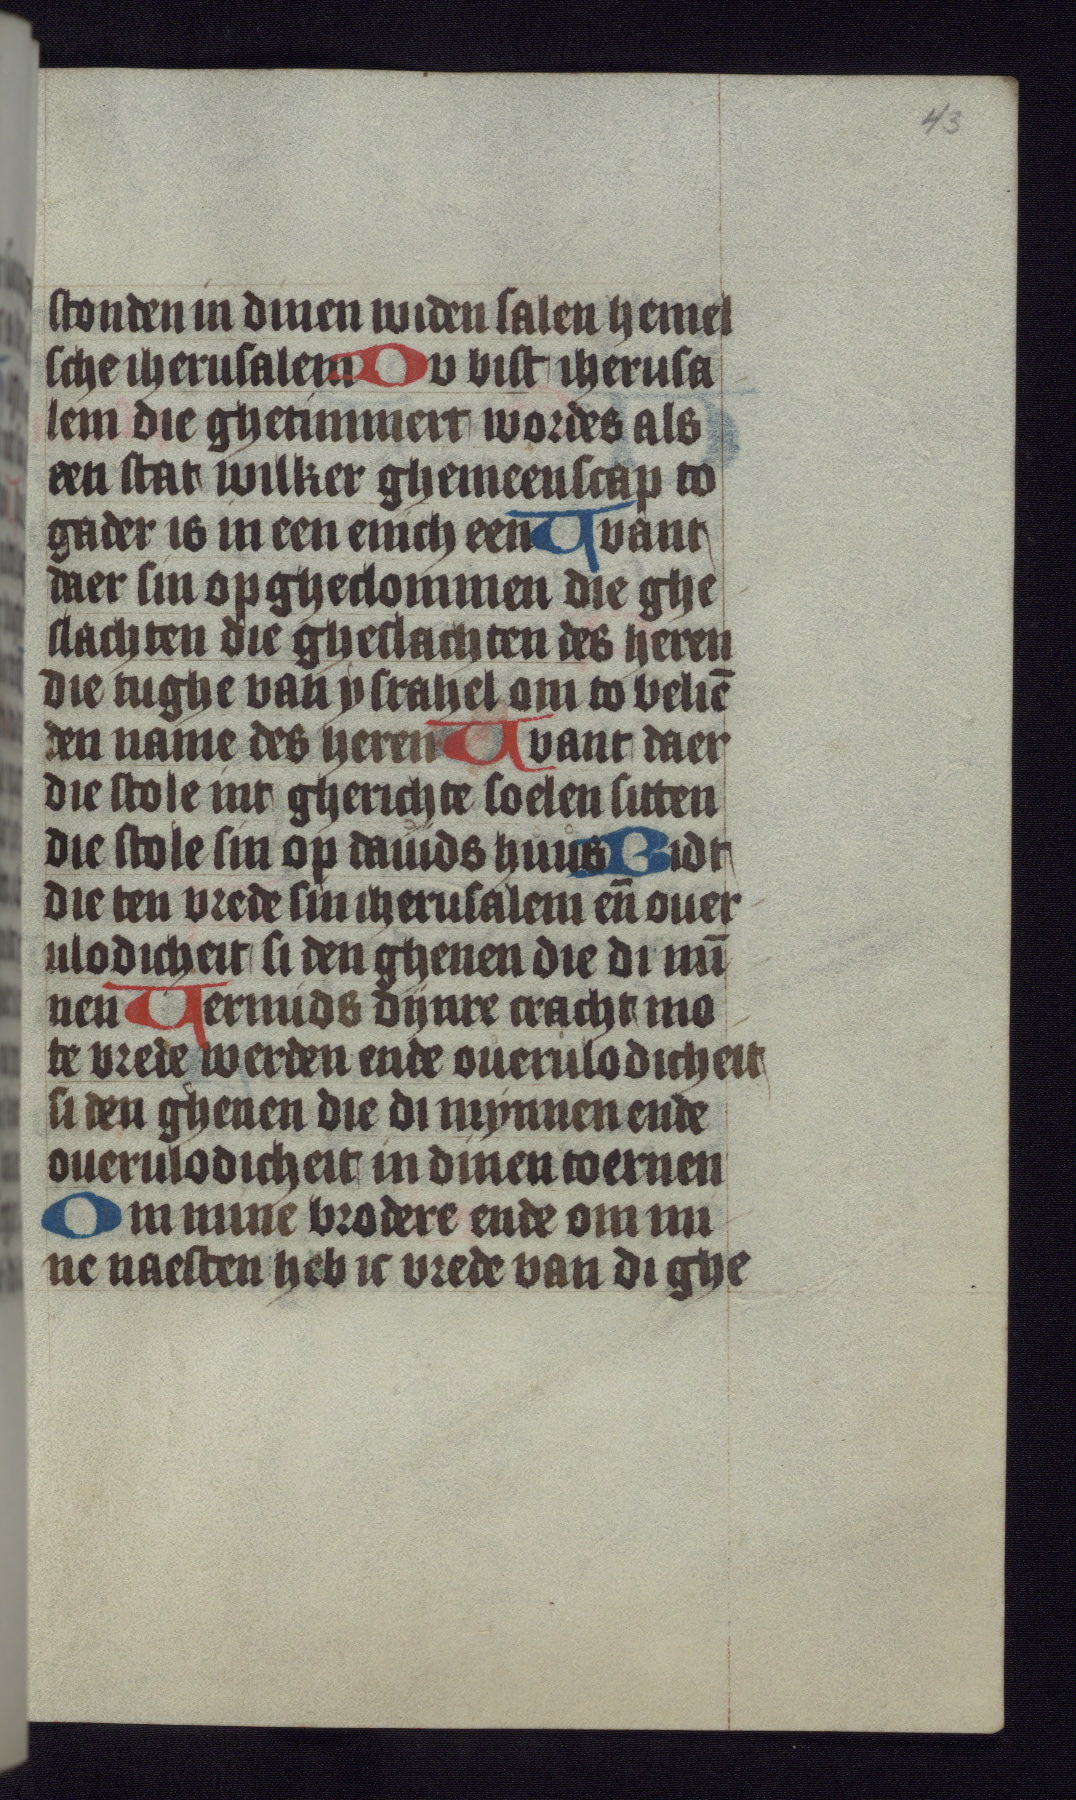 43
stonden in dinen widen salen hemel
sche iherusalem Du bist iherusa
lem die ghetimmert wordes als
een stat wilker ghemeenscap to
gader is in een enich een Want
daer sin op gheclommen die ghe
slachten die gheslachten des heren
die tughe van ysrahel om to velie̅
den name des heren Want daer
die stole int gherichte soelen sitten
die stole sin op dauids huus Bidt
die ten vrede sin iherusalem en̅ ouer
ulodicheit si den ghenen die di mi̅
nen Uermids dijnre cracht mo
te vrede werden ende ouerulodicheit
si den ghenen die di mynnen ende
ouerulodicheit in dinen toernen
Om mine brodere ende om mi
ne naesten heb ic vrede van di ghe